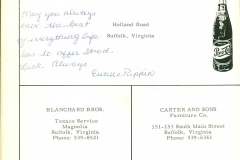 May you always
have the best
of everything life
has to offer. Good
luck Always
Eunice Pippin
Holland Road
Suffolk, Virginia
BLANCHARD BROS.
Texaco Service
Magnolia
Suffolk, Virginia
Phone: 539-8521
CARTER AND SONS
Furniture Co.
151-153 South Main Street
Suffolk, Virginia
Phone 539-6361